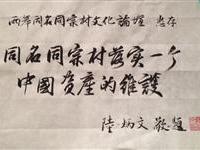 兩岸同名同宗村文化論壇 惠存
同名同宗村落实一个
中國的維護
陸炳文 敬題